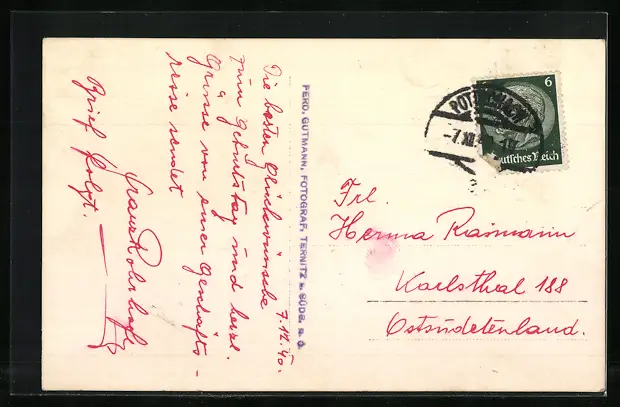 7.12.40.
Die besten Glückwünsche
zum Geburtstag und herzl.
Grüsse von einer Geschäfts-
reise sendet
Franz
Brief folgt.
FERD. GUTMANN, FOTOGRAF, TERNITZ a. SÜDB. N. Ö.
6
Deutsches Reich
-7.XII.
Frl.
Herma Raimann
Karlsthal 188
Ostsudetenland.